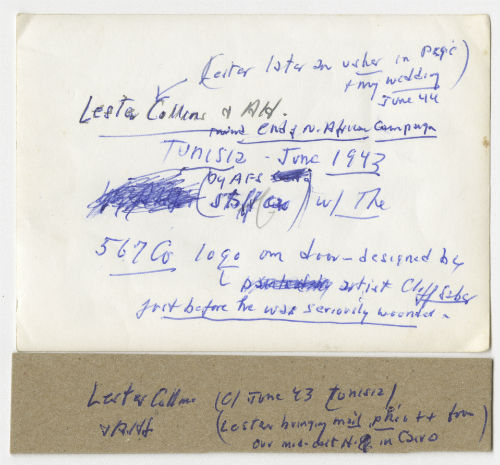 (Lester later an usher in Page's
+ my wedding)
June 44
Lester Collins & AH.
end of N. African Campaign
TUNISIA - June 1943
(by AFS
staff car) w/ The
567 Co logo on door - designed by
artist Cliff Saber
just before he was seriously wounded.
Lester Collins (c/ June 43 Tunisia)
& AH
(Lester bringing mail, + from
our mid-east H.Q. in Cairo